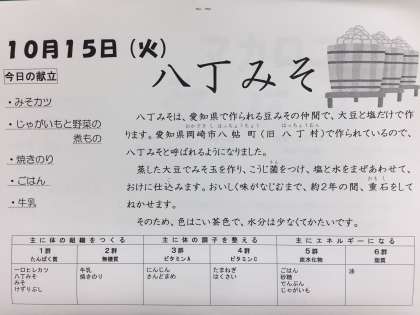 10月15日(火)
八丁みそ
今日の献立
・みそカツ
・じゃがいもと野菜の
煮もの
・焼きのり
・ごはん
・牛乳
八丁みそは、愛知県で作られる豆みその仲間で、大豆と塩だけで作
ります。愛知県岡崎市八帖町(旧 八丁村)で作られているので、
八丁みそと呼ばれるようになりました。
蒸した大豆でみそ玉を作り、こうじ菌をつけ、塩と水をまぜあわせて、
おけに仕込みます。おいしく味がなじむまで、約2年の間、重石をして
ねかせます。
そのため、色はこい茶色で、水分は少なくてかたいです。
主に体の組織をつくる 主に体の調子を整える 主にエネルギーになる
1群 2群 3群 4群 5群 6群
たんぱく質 無機質 ビタミンA ビタミンC 炭水化物 脂質
一口ヒレカツ 牛乳 にんじん たまねぎ ごはん 油
八丁みそ 焼きのり さんどまめ はくさい 砂糖
みそ でんぷん
けずりぶし じゃがいも